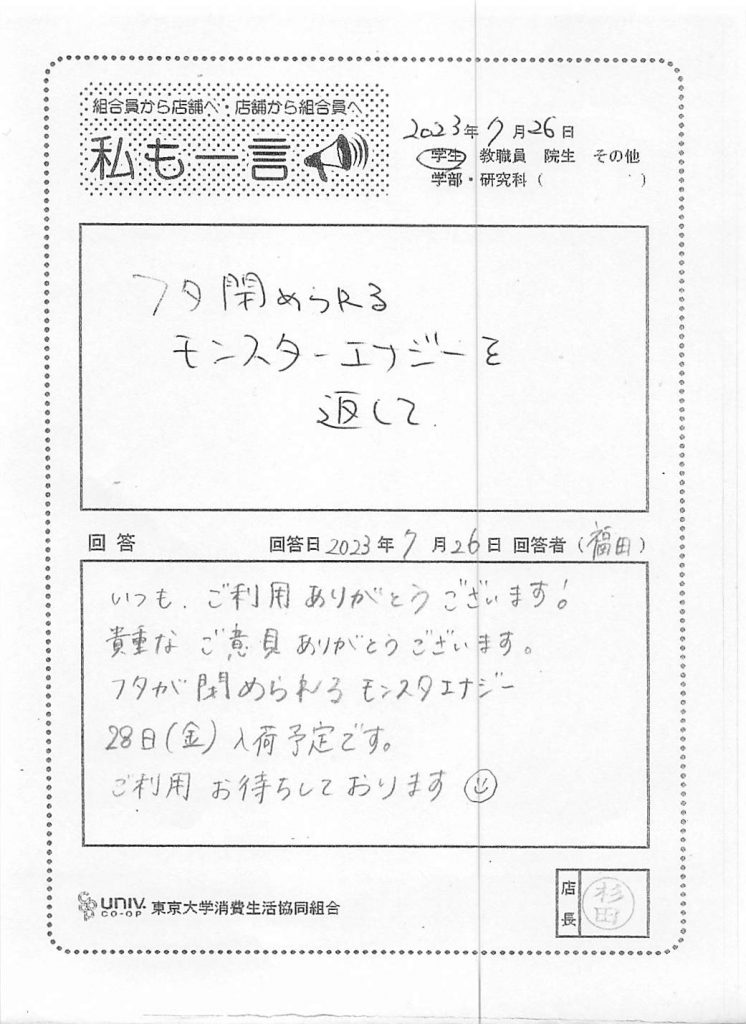 組合員から店舗へ・店舗から組合員へ
私も一言
2023年7月26日
学生 教職員 院生 その他
学部・研究科( )
フタ閉められる
モンスターエナジーを
返して
回答 回答日2023年7月26日 回答者(福田)
いつも、ご利用ありがとうございます!
貴重なご意見ありがとうございます。
フタが閉められるモンスタエナジー
28日(金)入荷予定です。
ご利用お待ちしております
UNIV. CO-OP 東京大学消費生活協同組合
店長 杉田